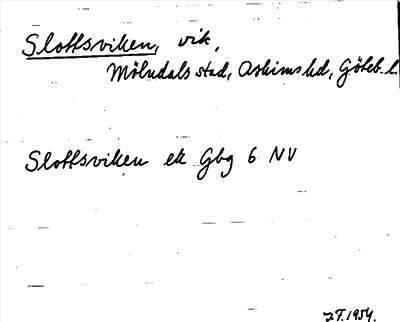 Slottsviken, vik,
Mölndals stad, Askims hd, Göteb. l.
Slottsviken ek Gbg 6 NV
1954.